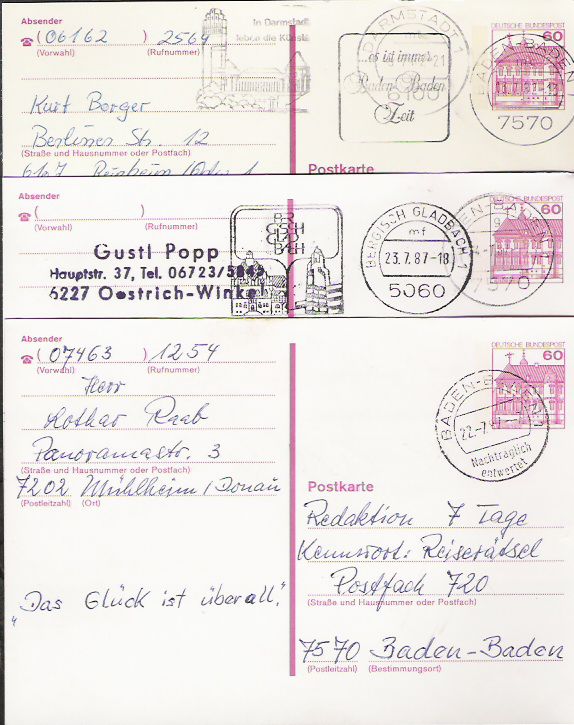 Absender
(06162 ) 2564
(Vorwahl) (Rufnummer)
Kurt Berger
Berliner Str. 12
(Straße und Hausnummer oder Postfach)
in Darmstadt
leben die Künste
DARMSTADT 1
6100
...es ist immer
Baden-Baden
Zeit
BADEN-BADEN
7570
DEUTSCHE BUNDESPOST
60
Postkarte
Absender
( )
(Vorwahl) (Rufnummer)
Gustl Popp
Hauptstr. 37, Tel. 06723/
6227 Oestrich-Winkel
BER
GISCH
GLAD
BACH
BERGISCH GLADBACH 1
mf
23.7.87-18
5060
DEUTSCHE BUNDESPOST
60
7570
Absender
(07463 ) 1254
(Vorwahl) (Rufnummer)
Herr
Lothar Raab
Panoramastr. 3
(Straße und Hausnummer oder Postfach)
7202 Mühlheim/Donau
(Postleitzahl) (Ort)
"Das Glück ist überall."
DEUTSCHE BUNDESPOST
60
BADEN-BADEN
Nachträglich
entwertet
Postkarte
Redaktion 7 Tage
Kennwort: Reiserätsel
Postfach 720
(Straße und Hausnummer oder Postfach)
7570 Baden-Baden
(Postleitzahl) (Bestimmungsort)